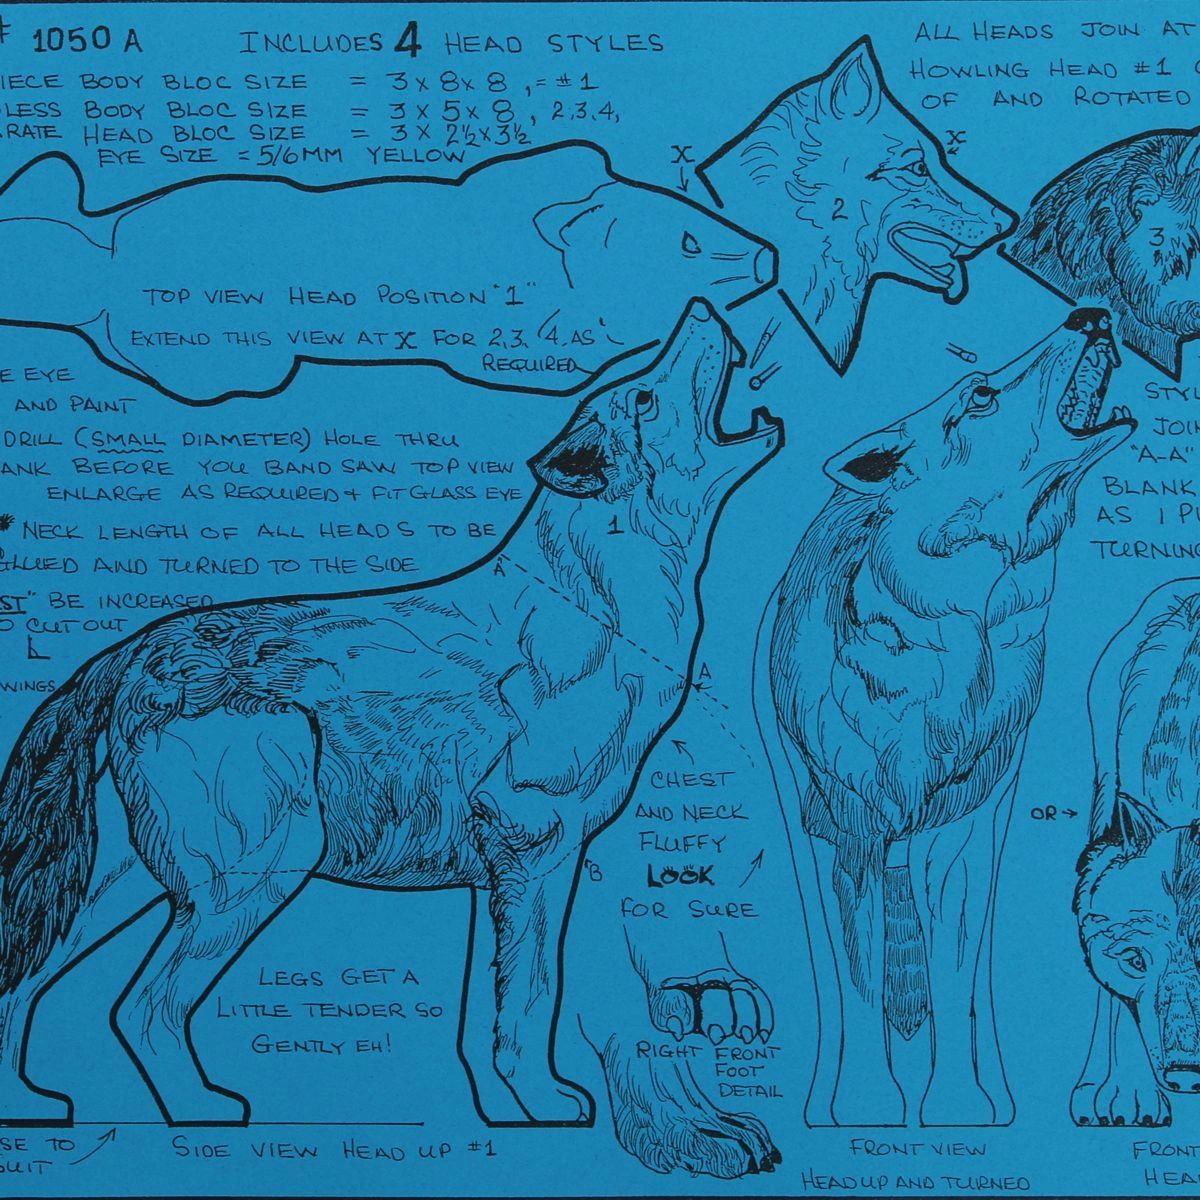 # 1050 A
INCLUDES 4 HEAD STYLES
ALL HEADS JOIN AT
HOWLING HEAD #1
OF AND ROTATED
IECE BODY BLOC SIZE = 3 x 8 x 8 , = #1
LESS BODY BLOC SIZE = 3 x 5 x 8 , 2,3,4,
RATE HEAD BLOC SIZE = 3 x 2½ x 3½
EYE SIZE = 5/6 MM YELLOW
X
X
2
3
TOP VIEW HEAD POSITION "1"
EXTEND THIS VIEW AT X FOR 2,3, 4, AS
REQUIRED
E EYE
AND PAINT
DRILL (SMALL DIAMETER) HOLE THRU
ANK BEFORE YOU BAND SAW TOP VIEW
ENLARGE AS REQUIRED + FIT GLASS EYE
* NECK LENGTH OF ALL HEADS TO BE
GLUED AND TURNED TO THE SIDE
ST" BE INCREASED
O CUT OUT
WINGS
1
A
A
B
STYL
JOIN
"A-A"
BLANK
AS I
TURNING
CHEST
AND NECK
FLUFFY
LOOK
FOR SURE
OR →
LEGS GET A
LITTLE TENDER SO
GENTLY EH!
RIGHT FRONT
FOOT
DETAIL
SE TO
SUIT
SIDE VIEW HEAD UP #1
FRONT VIEW
HEAD UP AND TURNED
FRONT
HEA